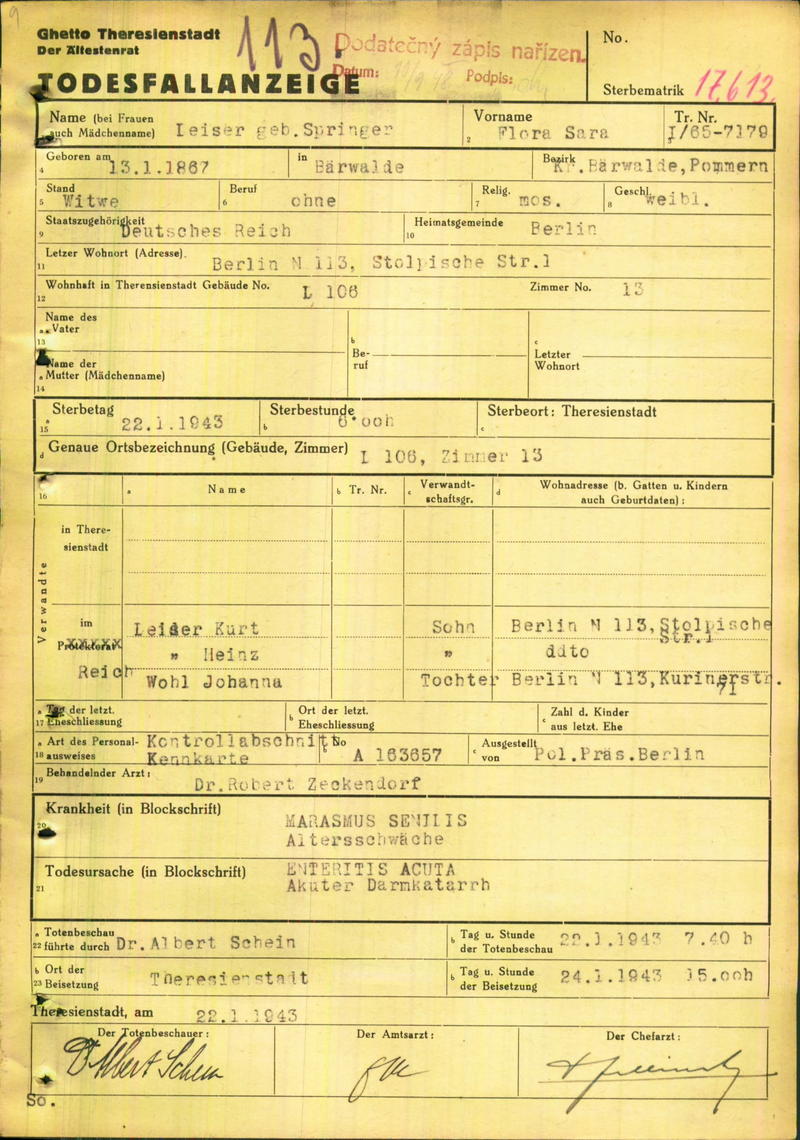 9
Ghetto Theresienstadt
Der Ältestenrat
113
Podatečný zápis nařízen.
Datum:
Podpis:
No.
TODESFALLANZEIGE
Sterbematrik 17613
Name (bei Frauen auch Mädchenname) Leiser geb.Springer
Vorname Flora Sara
2
Tr. Nr. I/65-7179
4 Geboren am 13.1.1867 in Bärwalde Bezirk Kr.Bärwalde,Pommern
5 Stand Witwe
6 Beruf ohne
7 Relig. mos.
8 Geschl. weibl.
9 Staatszugehörigkeit Deutsches Reich
10 Heimatsgemeinde Berlin
11 Letzer Wohnort (Adresse). Berlin N 113, Stolpische Str.1
12 Wohnhaft in Therensienstadt Gebäude No. L 106 Zimmer No. 13
13 a Name des Vater
b Beruf
c Letzter Wohnort
14 a Name der Mutter (Mädchenname)
15 a Sterbetag 22.1.1943
b Sterbestunde 6.ooh
c Sterbeort: Theresienstadt
d Genaue Ortsbezeichnung (Gebäude, Zimmer) L 106, Zimmer 13
16 a Name b Tr. Nr. c Verwandtschaftsgr. d Wohnadresse (b. Gatten u. Kindern auch Geburtdaten):
Verwandte
in Theresienstadt
im Protektorat Reich
Leiser Kurt Sohn Berlin N 113,Stolpische Str.1
" Heinz " dito
Wohl Johanna Tochter Berlin N 113,Kuringerstr. 71
17 a Tag der letzt. Eheschliessung
b Ort der letzt. Eheschliessung
c Zahl d. Kinder aus letzt. Ehe
18 a Art des Personalausweises Kontrollabschnitt Kennkarte
b No A 163657
c Ausgestellt von Pol.Präs.Berlin
19 Behandelnder Arzt: Dr.Robert Zeckendorf
20 Krankheit (in Blockschrift) MARASMUS SENILIS
Altersschwäche
21 Todesursache (in Blockschrift) ENTERITIS ACUTA
Akuter Darmkatarrh
22 a Totenbeschau führte durch Dr.Albert Schein
b Tag u. Stunde der Totenbeschau 22.1.1943 7.40 h
23 b Ort der Beisetzung Theresienstadt
b Tag u. Stunde der Beisetzung 24.1.1943 15.ooh
Theresienstadt, am 22.1.1943
Der Totenbeschauer: Der Amtsarzt: Der Chefarzt:
Dr Albert Schein
So.